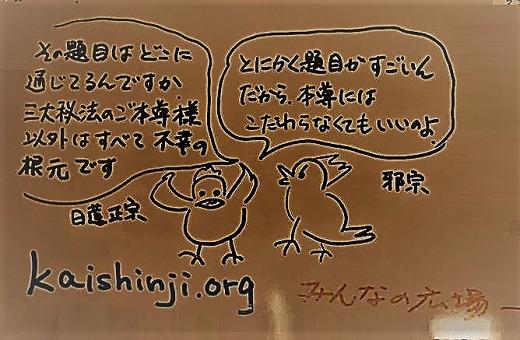 その題目はどこに
通じてるんですか
三大秘法のご本尊様
以外はすべて不幸の
根元です
日蓮正宗
とにかく題目がすごいん
だから、本尊には
こだわらなくてもいいのよ。
邪宗
kaishinji.org
みんなの広場